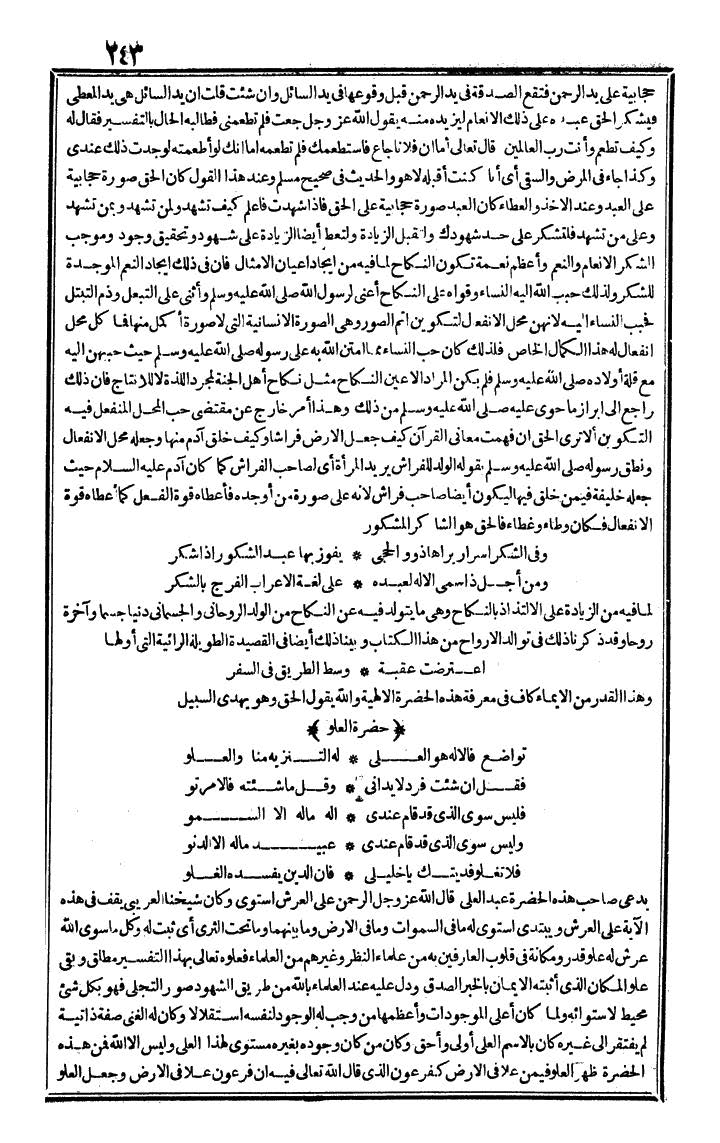 ٢٤٣
حجابية على يد الرحمن فتقع الصدقة فى يد الرحمن قبل وقوعها فى يد السائل وان شئت قلت ان يد السائل هى يد المعطى
فيشكر الحق عبده على ذلك الانعام ليزيده منه يقول الله عز وجل جعت فلم تطعمنى فطالبه الحال بالتفسير فقال له
وكيف تطعم وأنت رب العالمين قال تعالى أما ان فلانا جاع فاستطعمك فلم تطعمه اما انك لو أطعمته لوجدت ذلك عندى
وكذا جاء فى المرض والسقى أى أنا كنت أقبله لاهو والحديث فى صحيح مسلم وعند هذا القول كان الحق صورة حجابية
على العبد وعند الاخذ والعطاء كان العبد صورة حجابية على الحق فاذا شهدت فاعلم كيف تشهد ولمن تشهد وبمن تشهد
وعلى من تشهد فلتشكر على حد شهودك ولتقبل الزيادة ولتعط أيضا الزيادة على شهود وتحقيق وجود وموجب
الشكر الانعام والنعم وأعظم نعمة تكون النكاح لما فيه من ايجاد اعيان الامثال فان فى ذلك ايجاد النعم الموجدة
للشكر ولذلك حبب الله اليه النساء وقواه على النكاح أعنى لرسول الله صلى الله عليه وسلم وأثنى على التبعل وذم التبتل
فحبب النساء اليه لانهن محل الانفعال لتكوين اتم الصور وهى الصورة الانسانية التى لا صورة أكمل منها فما كل محل
انفعال له هذا الكمال الخاص فلذلك كان حب النساء مما امتن الله به على رسوله صلى الله عليه وسلم حيث حببهن اليه
مع قلة أولاده صلى الله عليه وسلم فلم يكن المراد الاعين النكاح مثل نكاح أهل الجنة لمجرد اللذة لا للانتاج فان ذلك
راجع الى ابراز ما حوى عليه صلى الله عليه وسلم من ذلك وهذا أمر خارج عن مقتضى حب المحل المنفعل فيه
التكوين ألا ترى الحق ان فهمت معانى القرآن كيف جعل الارض فراشا وكيف خلق آدم منها وجعله محل الانفعال
ونطق رسوله صلى الله عليه وسلم بقوله الولد للفراش يريد المرأة أى لصاحب الفراش كما كان آدم عليه السلام حيث
جعله خليفة فيمن خلق فيها ليكون أيضا صاحب فراش لانه على صورة من أوجده فأعطاه قوة الفعل كما أعطاه قوة
الانفعال فكان وطاء وغطاء فالحق هو الشاكر المشكور
وفى الشكر اسرار يراها ذوو الحجى * يفوز بها عبد الشكور اذا شكر
ومن أجل ذا سمى الاله لعبده * على لغة الاعراب الفرج بالشكر
لما فيه من الزيادة على الالتذاذ بالنكاح وهى ما يتولد فيه عن النكاح من الولد الروحانى والجسمانى دنيا جسما وآخرة
روحا وقد ذكرنا ذلك فى توالد الارواح من هذا الكتاب وبينا ذلك أيضا فى القصيدة الطويلة الرائية التى أولها
اعترضت عقبة * وسط الطريق فى السفر
وهذا القدر من الايماء كاف فى معرفة هذه الحضرة الالهية والله يقول الحق وهو يهدى السبيل
﴿حضرة العلو﴾
تواضع فالاله هو العلى * له التنزيه منا والعلو
فقل ان شئت فرد لا يدانى * وقل ما شئته فالامر تو
فليس سوى الذى قد قام عندى * اله ماله الا السمو
وليس سوى الذى قد قام عندى * عبيد ماله الا الدنو
فلا تغلو فديتك يا خليلى * فان الدين يفسده الغلو
يدعى صاحب هذه الحضرة عبد العلى قال الله عز وجل الرحمن على العرش استوى وكان شيخنا العريبى يقف فى هذه
الآية على العرش ويبتدى استوى له ما فى السموات وما فى الارض وما بينهما وما تحت الثرى أى ثبت له وكل ما سوى الله
عرش له علو قدر ومكانة فى قلوب العارفين به من علماء النظر وغيرهم من العلماء فعلوه تعالى بهذا التفسير مطلق وبقى
علو المكان الذى أثبته الايمان بالخبر الصدق ودل عليه عند العلماء بالله من طريق الشهود صور التجلى فهو بكل شئ
محيط لاستوائه ولما كان أعلى الموجودات وأعظمها من وجب له الوجود لنفسه استقلالا وكان له الغنى صفة ذاتية
لم يفتقر الى غيره كان بالاسم العلى أولى وأحق وكان من كان وجوده بغيره مستوى لهذا العلى وليس الا الله فمن هذه
الحضرة ظهر العلو فيمن علا فى الارض كفرعون الذى قال الله تعالى فيه ان فرعون علا فى الارض وجعل العلو